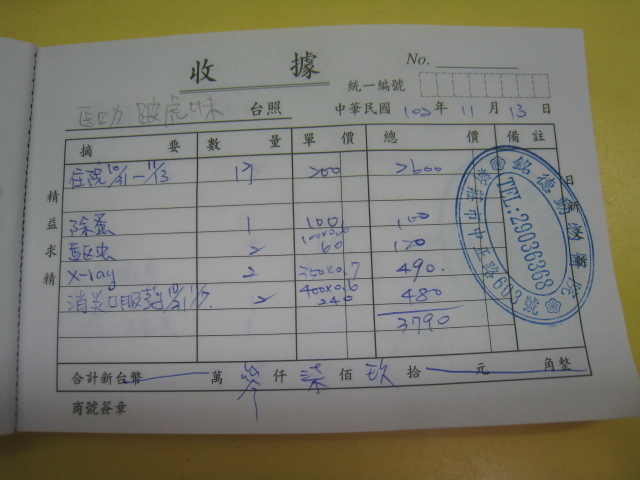 收據
No.
統一編號
台照 中華民國 102年 11月 13日
摘要 數量 單價 總價 備註
住院 10/31-11/13 13 200 2600
除蚤 1 100 100
驅虫 2 100x0.6 60 120
x-ray 2 350x0.7 490.
消炎口服藥 2 400x0.6 240 480
3790
合計新台幣 萬 參仟 柒佰 玖拾 元 角整
精益求精
商號簽章
銘德動物醫院
TEL:29036368
新莊市中正路603號